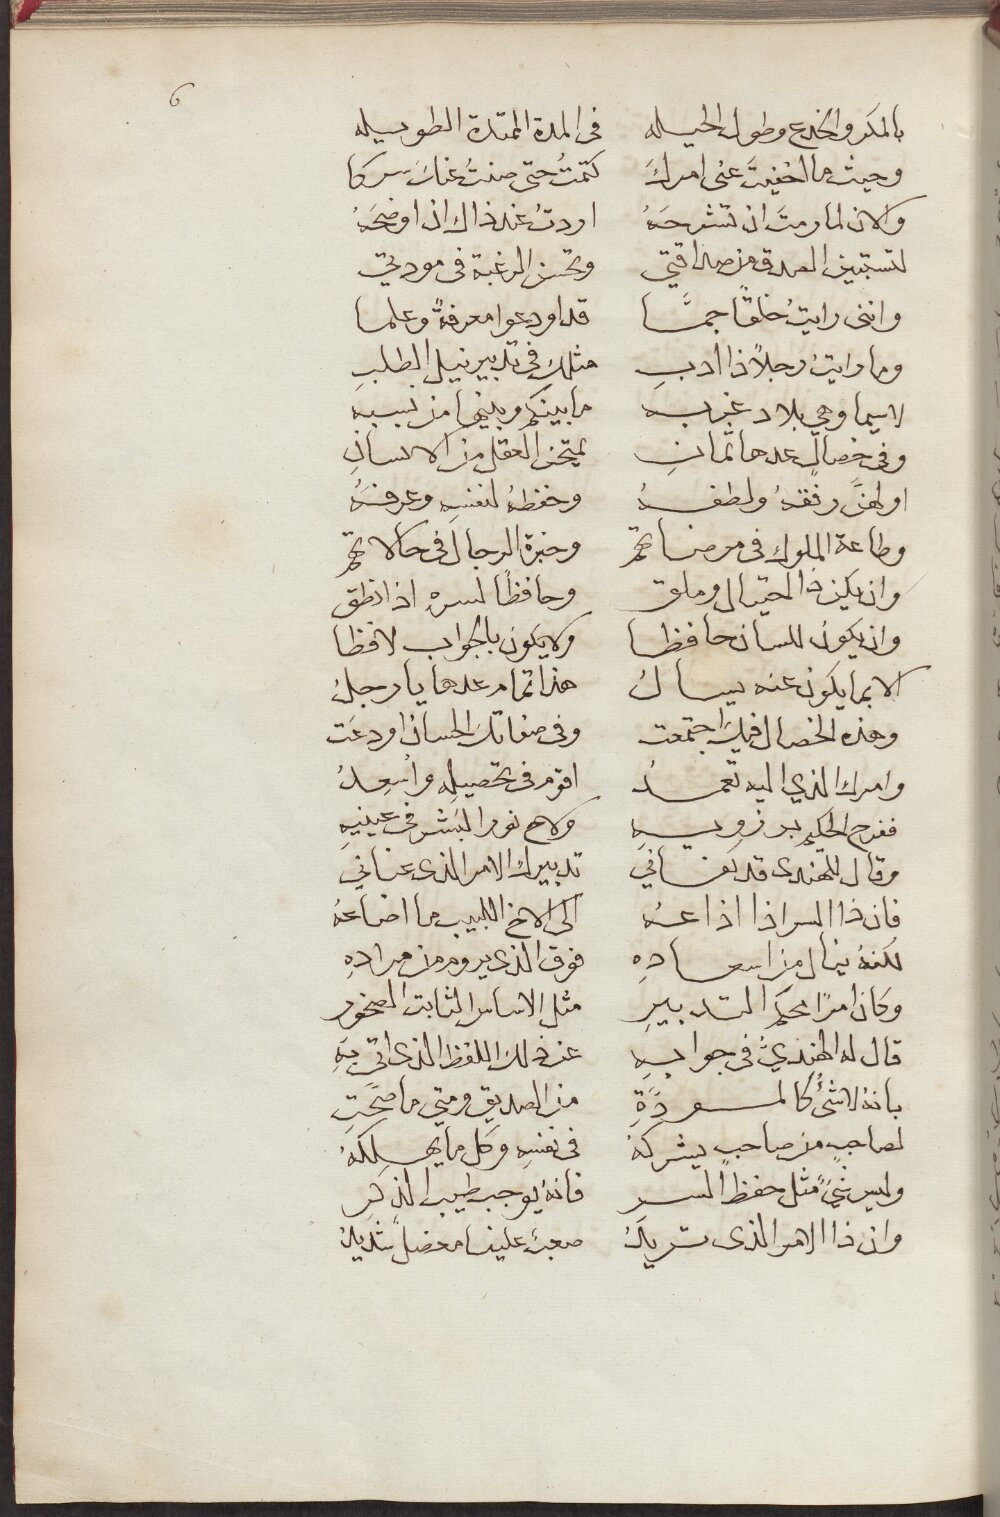 6
بالمكر والخدع وطول الحيله في المدة الممتدة الطويله
وحيث ما اخفيتَ عنى امركَ كتمتُ حتى صنتُ عنكَ سركا
وكان لما رمتَ ان تشرحَهُ اردتُ عند ذاك ان اوضحَهُ
لتستبين الصدق من صداقتي وتحسن الرغبة في مودتي
وانني رايتُ خلقًا جمًّا قد اودعوا معرفةً وعلما
وما رايتُ رجلاً ذا ادبِ مثلك في تدبير نيل الطلبِ
لاسيما وهي بلاد غربه ما بينكم وبينها من نسبه
وفي خصالٍ عدها ثمانِ يمتحن العقل من الانسانِ
اولهنَّ رفقهُ ولطفهُ وحفظهُ لنفسهِ وعرفهُ
وطاعة الملوك في مرضاتهم وخبرة الرجال في حالاتهم
وان يكن ذا احتيال وملق وحافظًا لسرهِ اذا نطق
وان يكون للسان حافظا ولا يكون بالجواب لافظا
الا بما يكون عنه يسالُ هذا تمام عدها يا رجلُ
وهذه الخصال فيكَ اجتمعت وفي صفاتك الحسان اودعَت
وامرك الذي اليه تعمدُ اقوم في تحصيله واُسعِدُ
ففرح الحكيم برزويهِ ولاح نور البشر في عينيهِ
وقال للهندى قد لفاني تدبيرك الامر الذى عناني
فان ذا السر اذا اذاعهُ الى الاخ اللبيب ما اضاعهُ
لكنهُ ينال من اسعادهِ فوق الذى يروم من مرادهِ
وكان امرًا محكم التدبيرِ مثل الاساس الثابت الصخور
قال له الهنديُّ في جوابهِ عن ذلك اللفظ الذى اتى بهِ
بانهُ لا شئٌ كالمودَّةِ من الصديق ومتى ما صحَّتِ
لصاحبٍ من صاحبٍ يشركهُ في نفسهِ وكل ما يملكهُ
وليس شئٌ مثل حفظ السر فانهُ يوجب طيب الذكر
وان ذا الامر الذى تريدُ صعبٌ علينا معضلٌ شديدُ